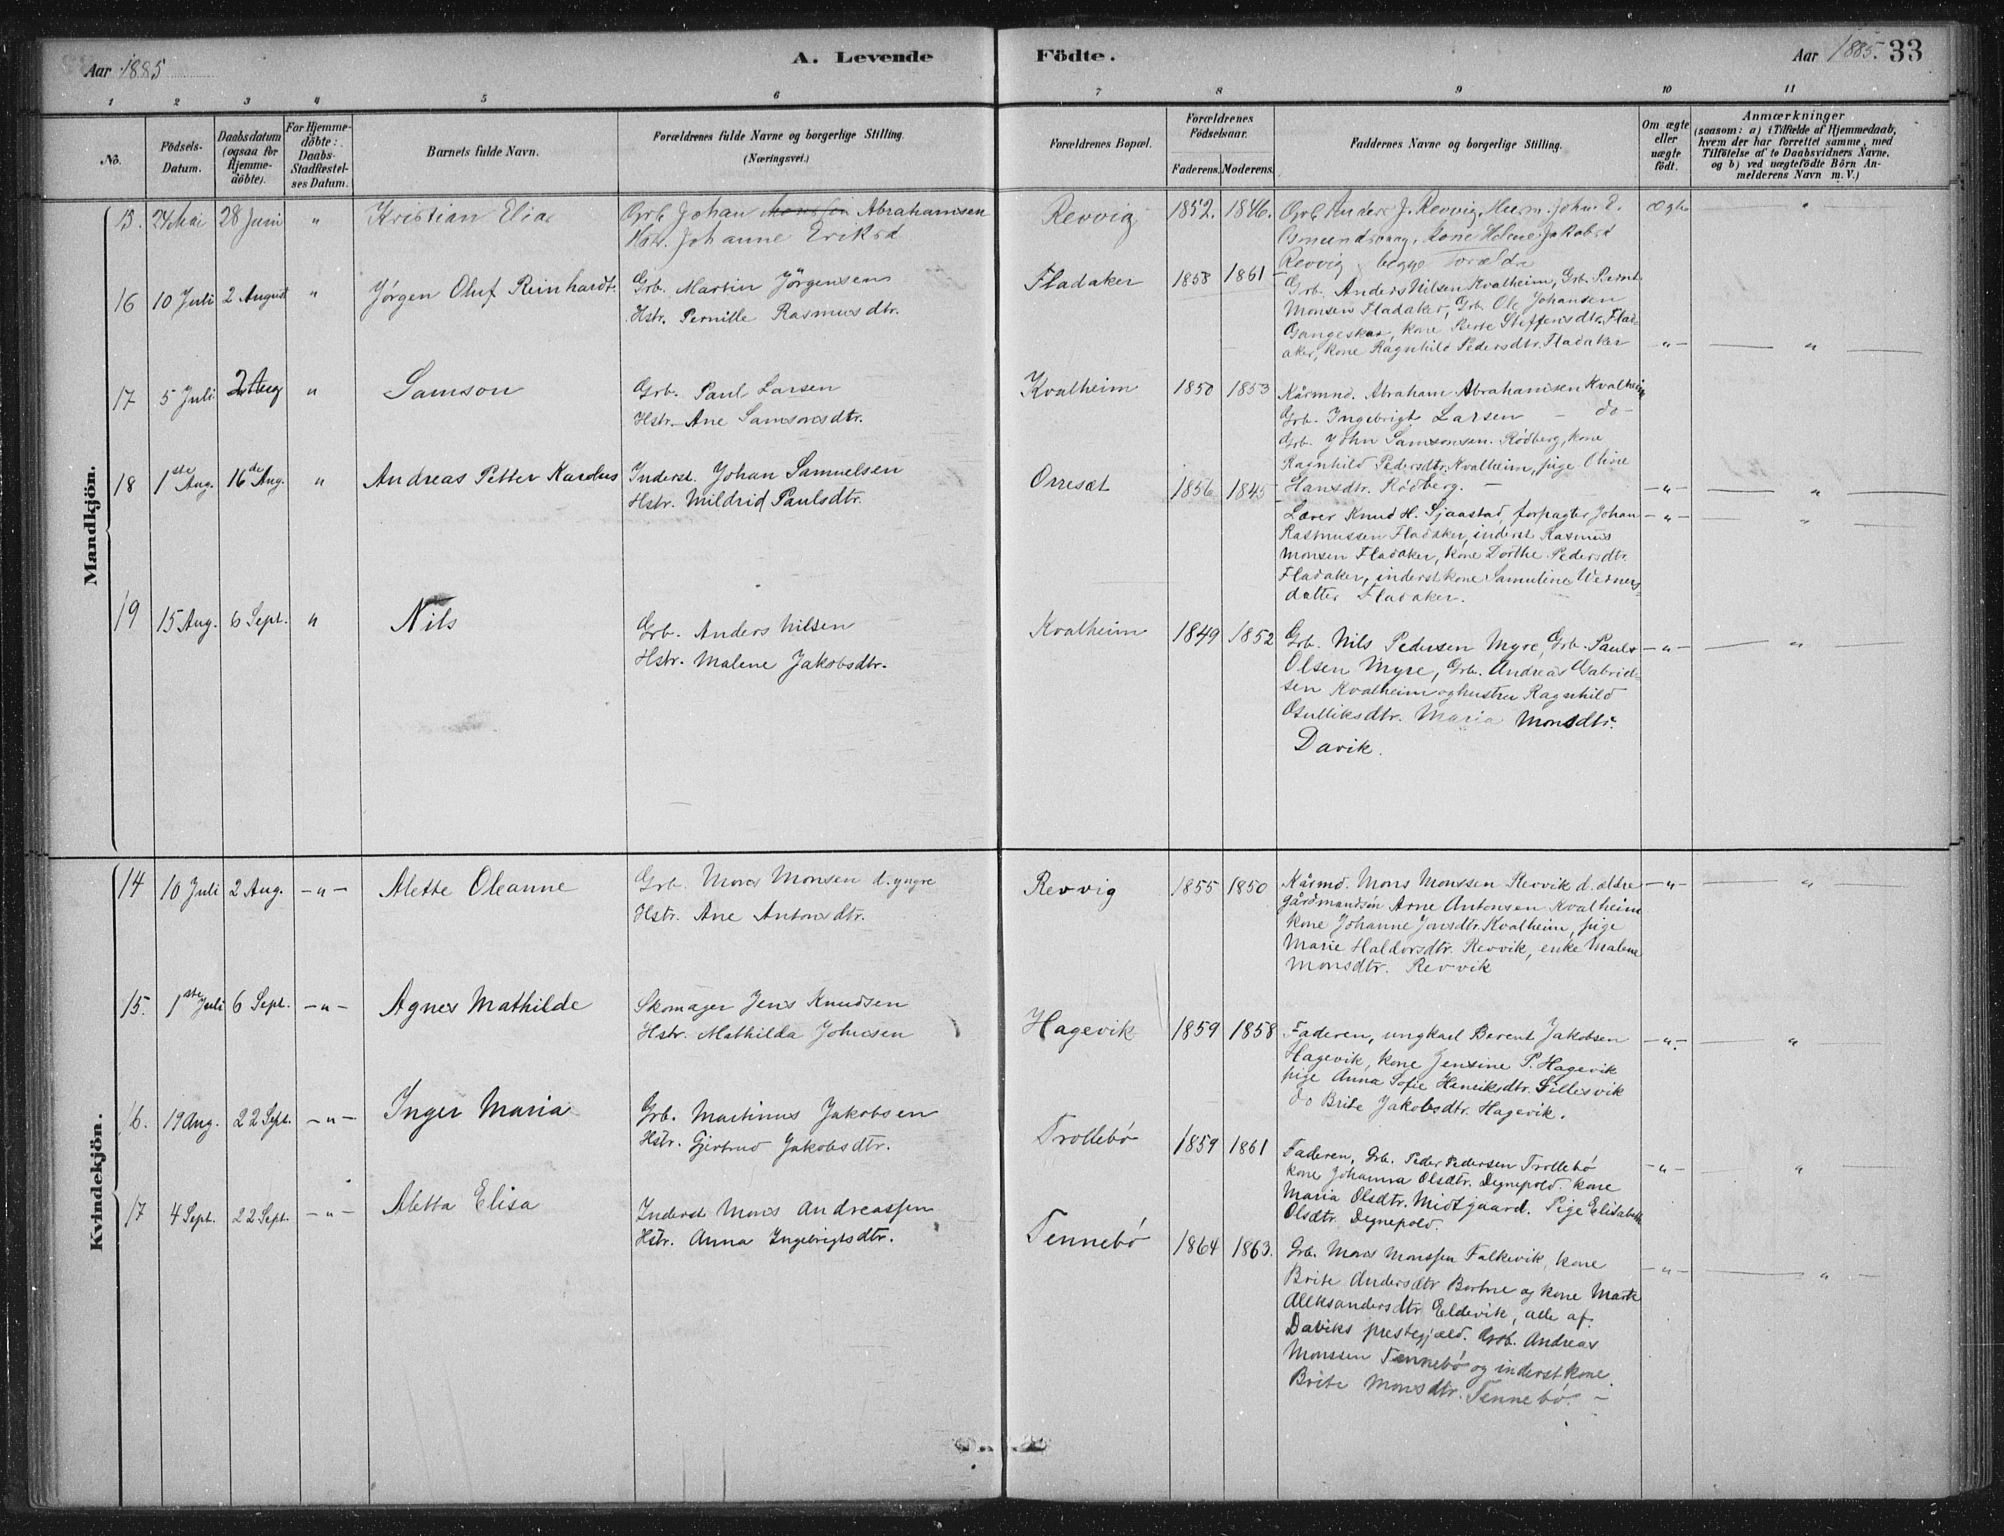 Aar 1885
A. Levende
Födte.
Aar 1885. 33
1 2 3 4 5 6 7 8 9 10 11
No.
Födsels-Datum.
Daabsdatum (ogsaa for Hjemme-döbte).
For Hjemme-döbte: Daabs-Stadfæstel-ses Datum.
Barnets fulde Navn.
Forældrenes fulde Navne og borgerlige Stilling. (Næringsvei.)
Forældrenes Bopæl.
Forældrenes Födselsaar.
Faderens. Moderens.
Faddernes Navne og borgerlige Stilling.
Om ægte eller uægte födt.
Anmærkninger
(saasom: a) i Tilfælde af Hjemmedaab, hvem der har forrettet samme, med Tilföielse af to Daabsvidners Navne, og b) ved uægtefödte Börn An-melderens Navn m. V.)
Mandkjön.
15. 24 Mai 28 Juni " Kristian Elias
Grb. Johan Monsson Abrahamsen
Hstr. Johanne Eriksd
Revvig 1852. 1846.
Grb Anders J. Revvig, Husm. John E.
Osmundsvaag, Kone Helene Jakobsd
Revvig, begge Forældre
ægte "
16 10 Juli 2 August " Jörgen Oluf Reinhardt.
Grb. Martin Jörgensen
Hstr. Pernille Rasmusdtr.
Fladaker 1858 1861
Grb. Anders Nilsen Kvalheim, Grb. Bernt
Monsen Fladaker, Grb. Ole Johansen
Gangeskar, kone Berte Steffensdtr. Flad-
aker, kone Ragnhild Pedersdtr. Fladaker
-"- "
17 5 Juli 2 Aug " Samson
Grb. Paul Larsen
Hstr. Ane Samsonsdtr.
Kvalheim 1850 1853
Kårmnd. Abraham Abrahamsen Kvalheim
Grb. Ingebrigt Larsen - do -
Grb. John Samsonsen Rödberg, kone
Ragnhild Pedersdtr. Kvalheim, pige Oline
Hansdtr. Rödberg. -
-"- "
18 1ste Aug. 16de Aug. " Andreas Petter Kardus
Inderst Johan Samuelsen
Hstr. Mildrid Paulsdtr.
Orresæt 1856 1845
Lærer Knud H. Sjaastad, forpagter Johan
Rasmussen Fladaker, inderst Rasmus
Monsen Fladaker, kone Dorthe Pedersdtr.
Fladaker, inderstkone Samuline Werners-
datter Fladaker.
-"- "
19 15 Aug. 6 Sept. " Nils
Grb. Anders Nilsen
Hstr. Malene Jakobsdtr.
Kvalheim 1849 1852
Grb. Nils Pedersen Myre, Grb. Pauls
Olsen Myre, Grb. Andreas Gabriel-
sen Kvalheim og hustru Ragnhild
Maria Monsdtr.
Davik.
-"- "
Kvindekjön.
14 10 Juli 2 Aug. -"- Alette Oleanne
Grb. Mons Monsen d. yngre
Hstr. Ane Antonsdtr.
Revvig 1855 1850
Kårmd. Mons Monssen Revvik d. ældre
gårdmandsön Arne Antonsen Kvalheim
kone Johanne Jonsdtr. Kvalheim, pige
Marie Haldorsdtr. Revvik, enke Malene
Monsdtr. Revvik
-"- "
15. 1ste Juli 6 Sept. -"- Agnes Mathilde
Skomager Jens Knudsen
Hstr. Mathilda Johnsen
Hagevik 1859 1858
Faderen, ungkael Berent Jakobsen
Hagevik, kone Jensine P. Hagevik
pige Anna Sofie Henriksdtr. Sillesvik
do Brite Jakobsdtr. Hagevik.
-"- "
16. 19 Aug. 22 Sept. -"- Inger Maria
Grb. Martinus Jakobsen
Hstr. Gjertrud Jakobsdtr.
Trollebö 1859 1861
Faderen, Grb. Peder Pedersen Trollebö
kone Johanna Olsdtr. Degnepold. kone
Maria Olsdtr. Midtgaard. Pige Elisabeth
Olsdtr. Degnepold.
-"- "
17 4 Sept. 22 Sept. -"- Aletta Elisa
Inderst Mons Andreassen
Hstr. Anna Ingebrigtsdtr.
Tennebö 1864 1863.
Grb. Mons Monssen Falkevik, kone
Brite Andersdtr Bortne og kone Marte
Aleksandersdtr Eldevik, alle af
Daviks prestegjæld. Grb. Andreas
Monssen Tennebö og inderstkone
Brite Monsdtr. Tennebö. -
-"- "